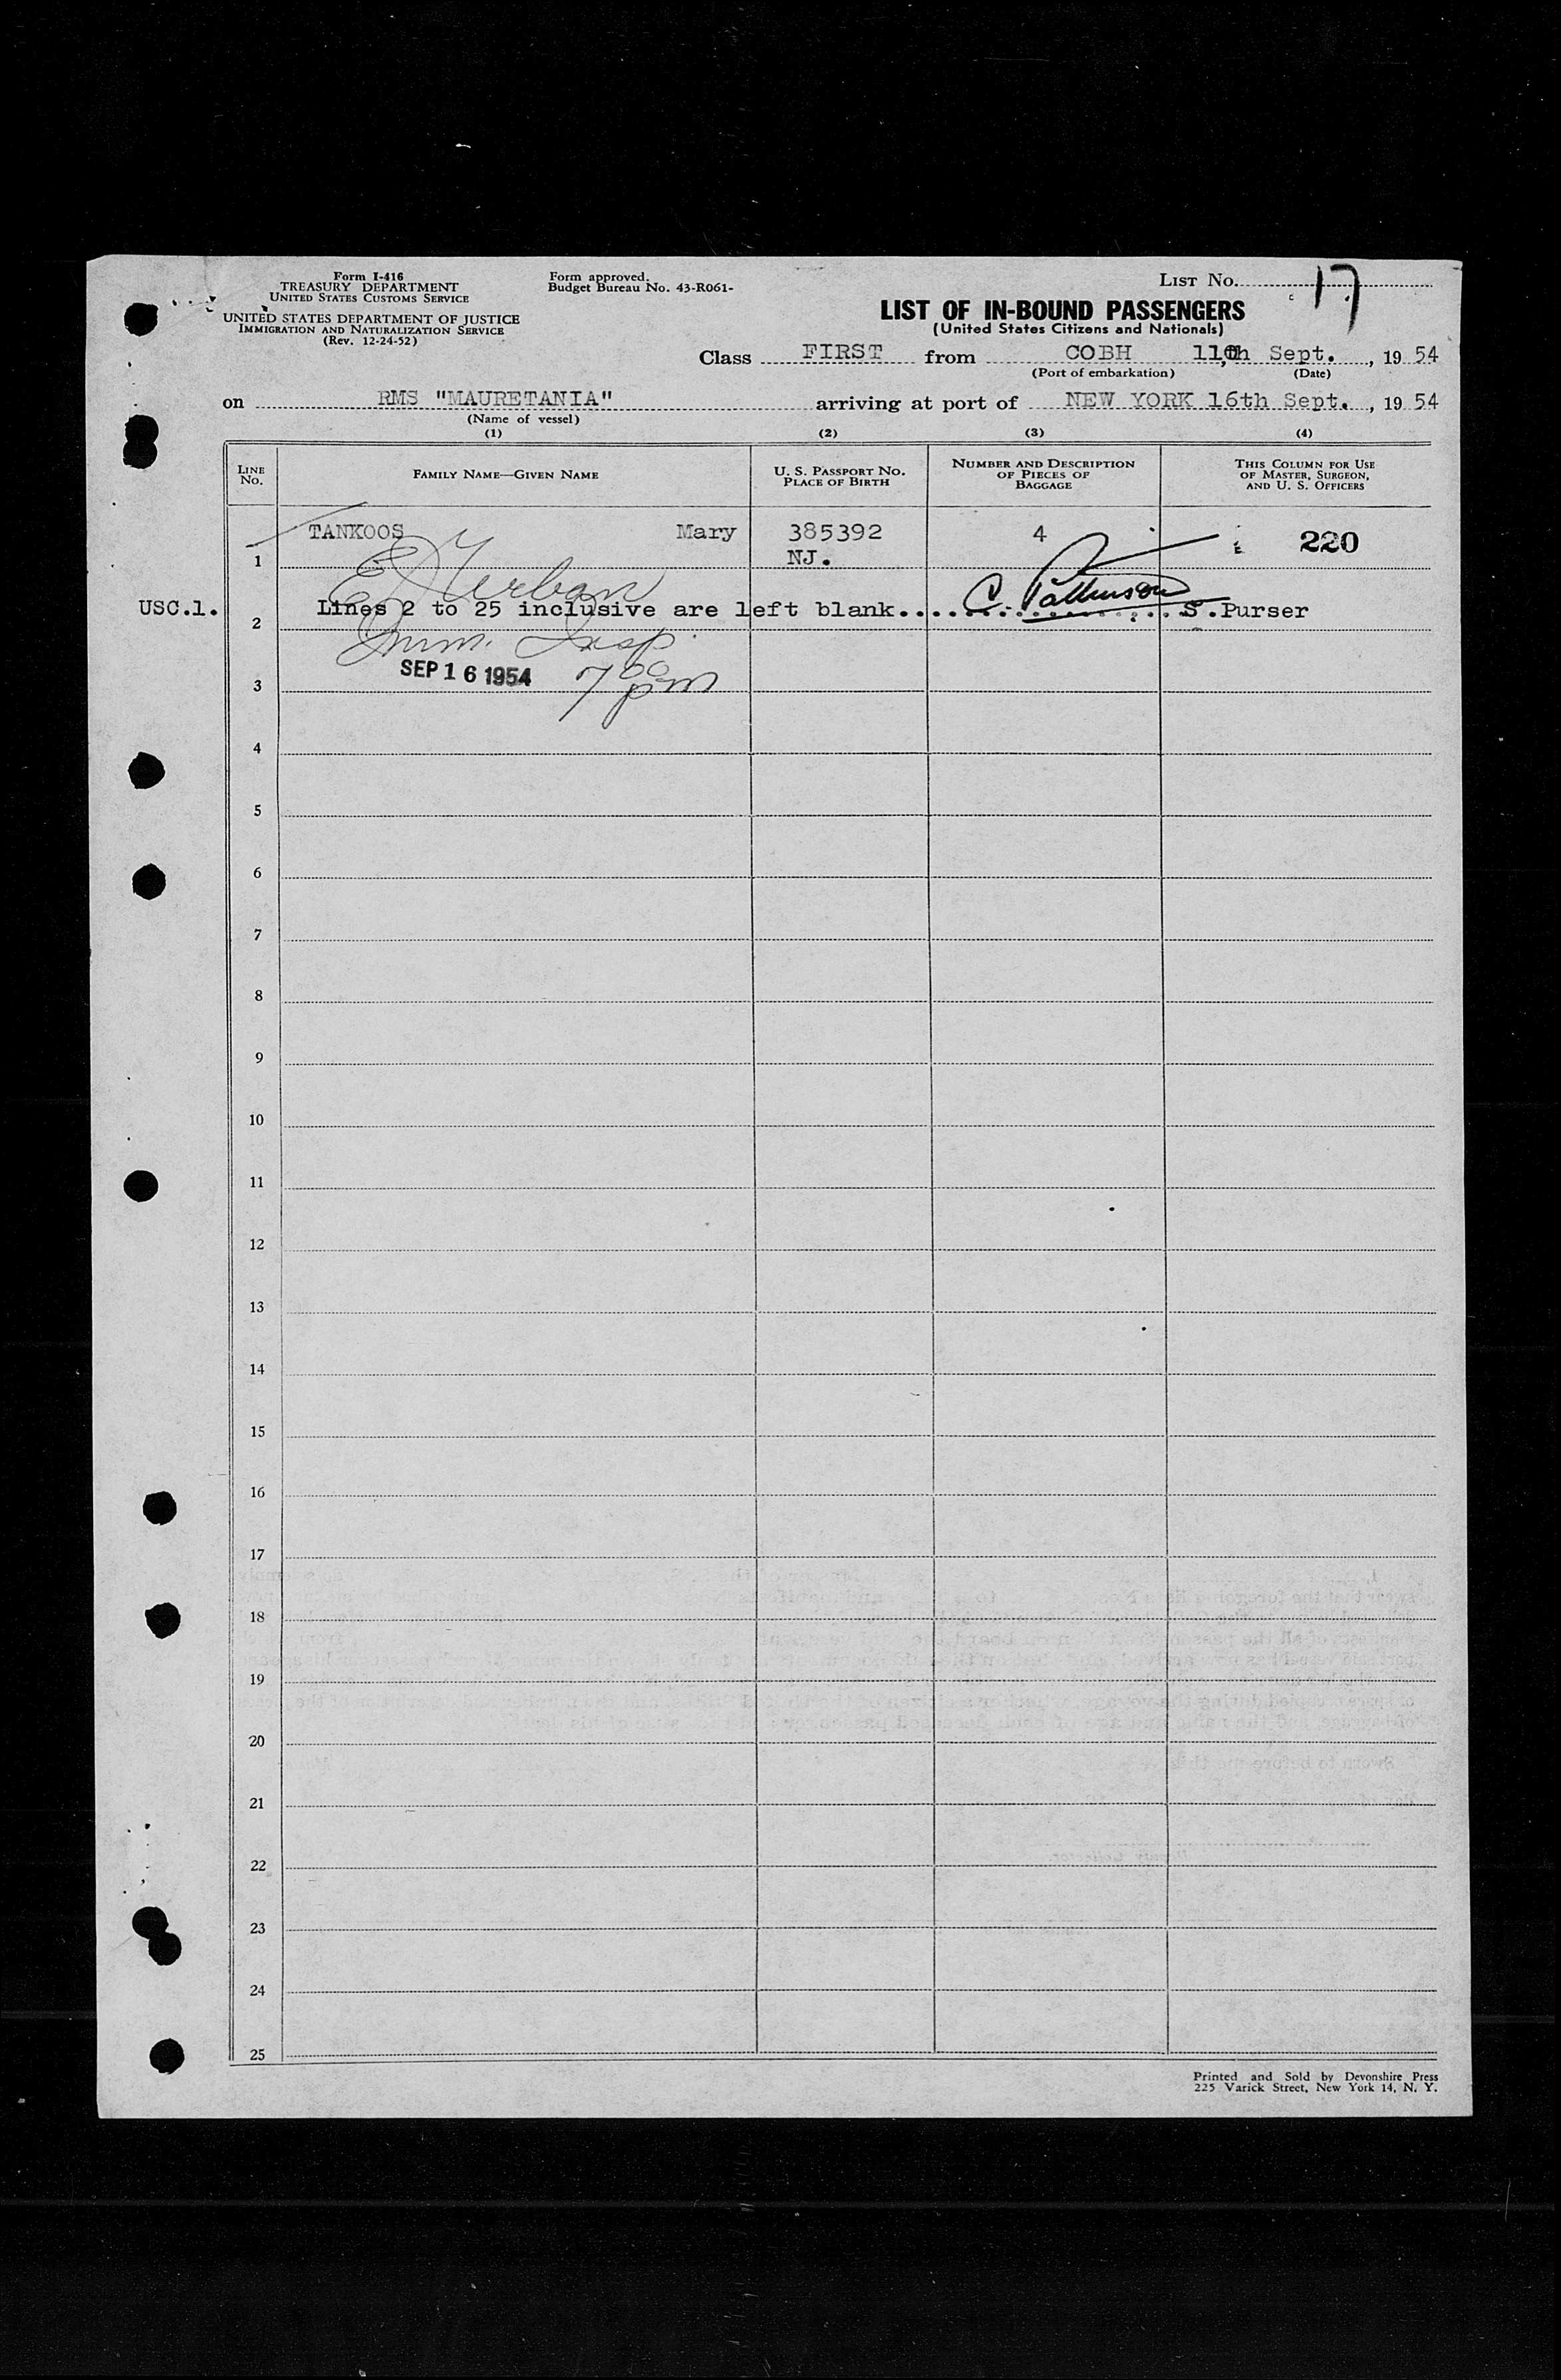 Form I-416
TREASURY DEPARTMENT
UNITED STATES CUSTOMS SERVICE
UNITED STATES DEPARTMENT OF JUSTICE
IMMIGRATION AND NATURALIZATION SERVICE
(Rev. 12-24-52)
Form approved.
Budget Bureau No. 43-R061-
LIST No. 17
LIST OF IN-BOUND PASSENGERS
(United States Citizens and Nationals)
Class FIRST from COBH 11th Sept., 19 54
(Port of embarkation) (Date)
on RMS "MAURETANIA" arriving at port of NEW YORK 16th Sept., 19 54
(Name of vessel)
(1) (2) (3) (4)
LINE No. FAMILY NAME—GIVEN NAME U. S. PASSPORT NO. PLACE OF BIRTH NUMBER AND DESCRIPTION OF PIECES OF BAGGAGE THIS COLUMN FOR USE OF MASTER, SURGEON, AND U. S. OFFICERS
TANKOOS Mary 385392 4 220
1 NJ.
Urban
USC.1. Lines 2 to 25 inclusive are left blank.... C. S.Purser
2
Imm. Insp.
SEP 16 1954 7 00 pm
3
4
5
6
7
8
9
10
11
12
13
14
15
16
17
18
19
20
21
22
23
24
25
Printed and Sold by Devonshire Press
225 Varick Street, New York 14, N. Y.